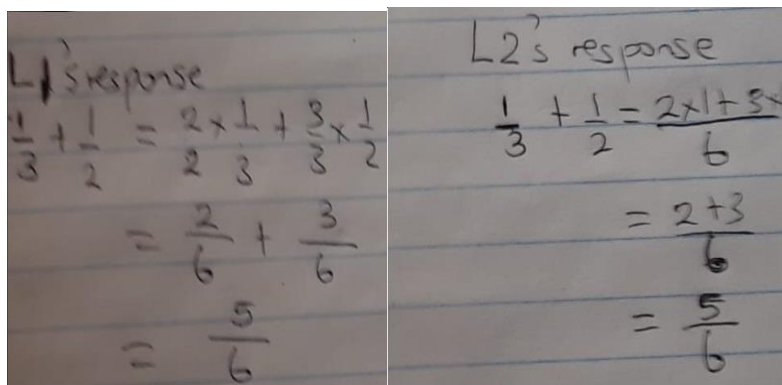 L1's response
1/3 + 1/2 = 2/2 × 1/3 + 3/3 × 1/2
= 2/6 + 3/6
= 5/6
L2's response
1/3 + 1/2 = (2×1+3×)/6
= (2+3)/6
= 5/6